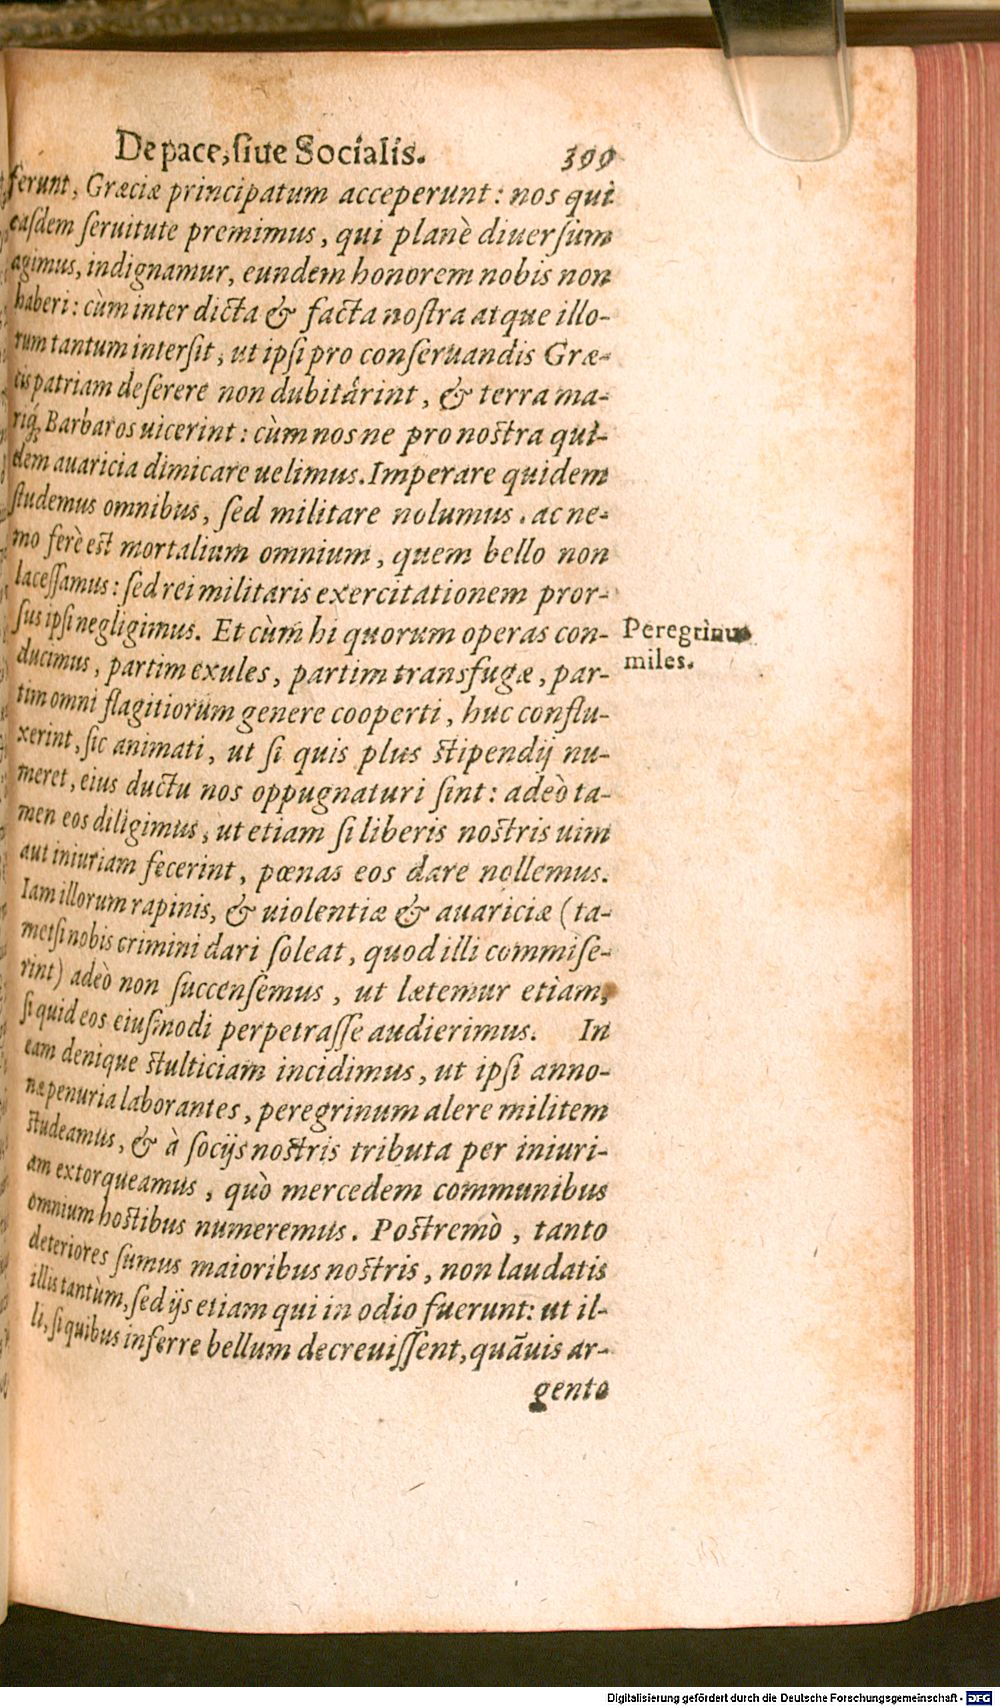 De pace, siue Socialis. 399
ferunt, Græciæ principatum acceperunt: nos qui
easdem seruitute premimus, qui planè diuersum
agimus, indignamur, eundem honorem nobis non
haberi: cùm inter dicta & facta nostra atque illo-
rum tantum intersit, ut ipsi pro conseruandis Græ-
cis patriam deserere non dubitârint, & terra ma-
riq́; Barbaros uicerint: cùm nos ne pro nostra qui-
dem auaricia dimicare uelimus. Imperare quidem
studemus omnibus, sed militare nolumus. ac ne-
mo ferè est mortalium omnium, quem bello non
lacessamus: sed rei militaris exercitationem pror-
sus ipsi negligimus. Et cùm hi quorum operas con-
Peregrinus
miles.
ducimus, partim exules, partim transfugæ, par-
tim omni flagitiorum genere cooperti, huc conflu-
xerint, sic animati, ut si quis plus stipendij nu-
meret, eius ductu nos oppugnaturi sint: adeò ta-
men eos diligimus, ut etiam si liberis nostris uim
aut iniuriam fecerint, pœnas eos dare nollemus.
Iam illorum rapinis, & uiolentiæ & auariciæ (ta-
metsi nobis crimini dari soleat, quod illi commise-
rint) adeò non succensemus, ut lætemur etiam,
si quid eos eiusmodi perpetrasse audierimus. In
eam denique stulticiam incidimus, ut ipsi anno-
næ penuria laborantes, peregrinum alere militem
studeamus, & à socijs nostris tributa per iniuri-
am extorqueamus, quò mercedem communibus
omnium hostibus numeremus. Postremò, tanto
deteriores sumus maioribus nostris, non laudatis
illis tantùm, sed ijs etiam qui in odio fuerunt: ut il-
li, si quibus inferre bellum decreuissent, quãuis ar-
gento
Digitalisierung gefördert durch die Deutsche Forschungsgemeinschaft - DFG